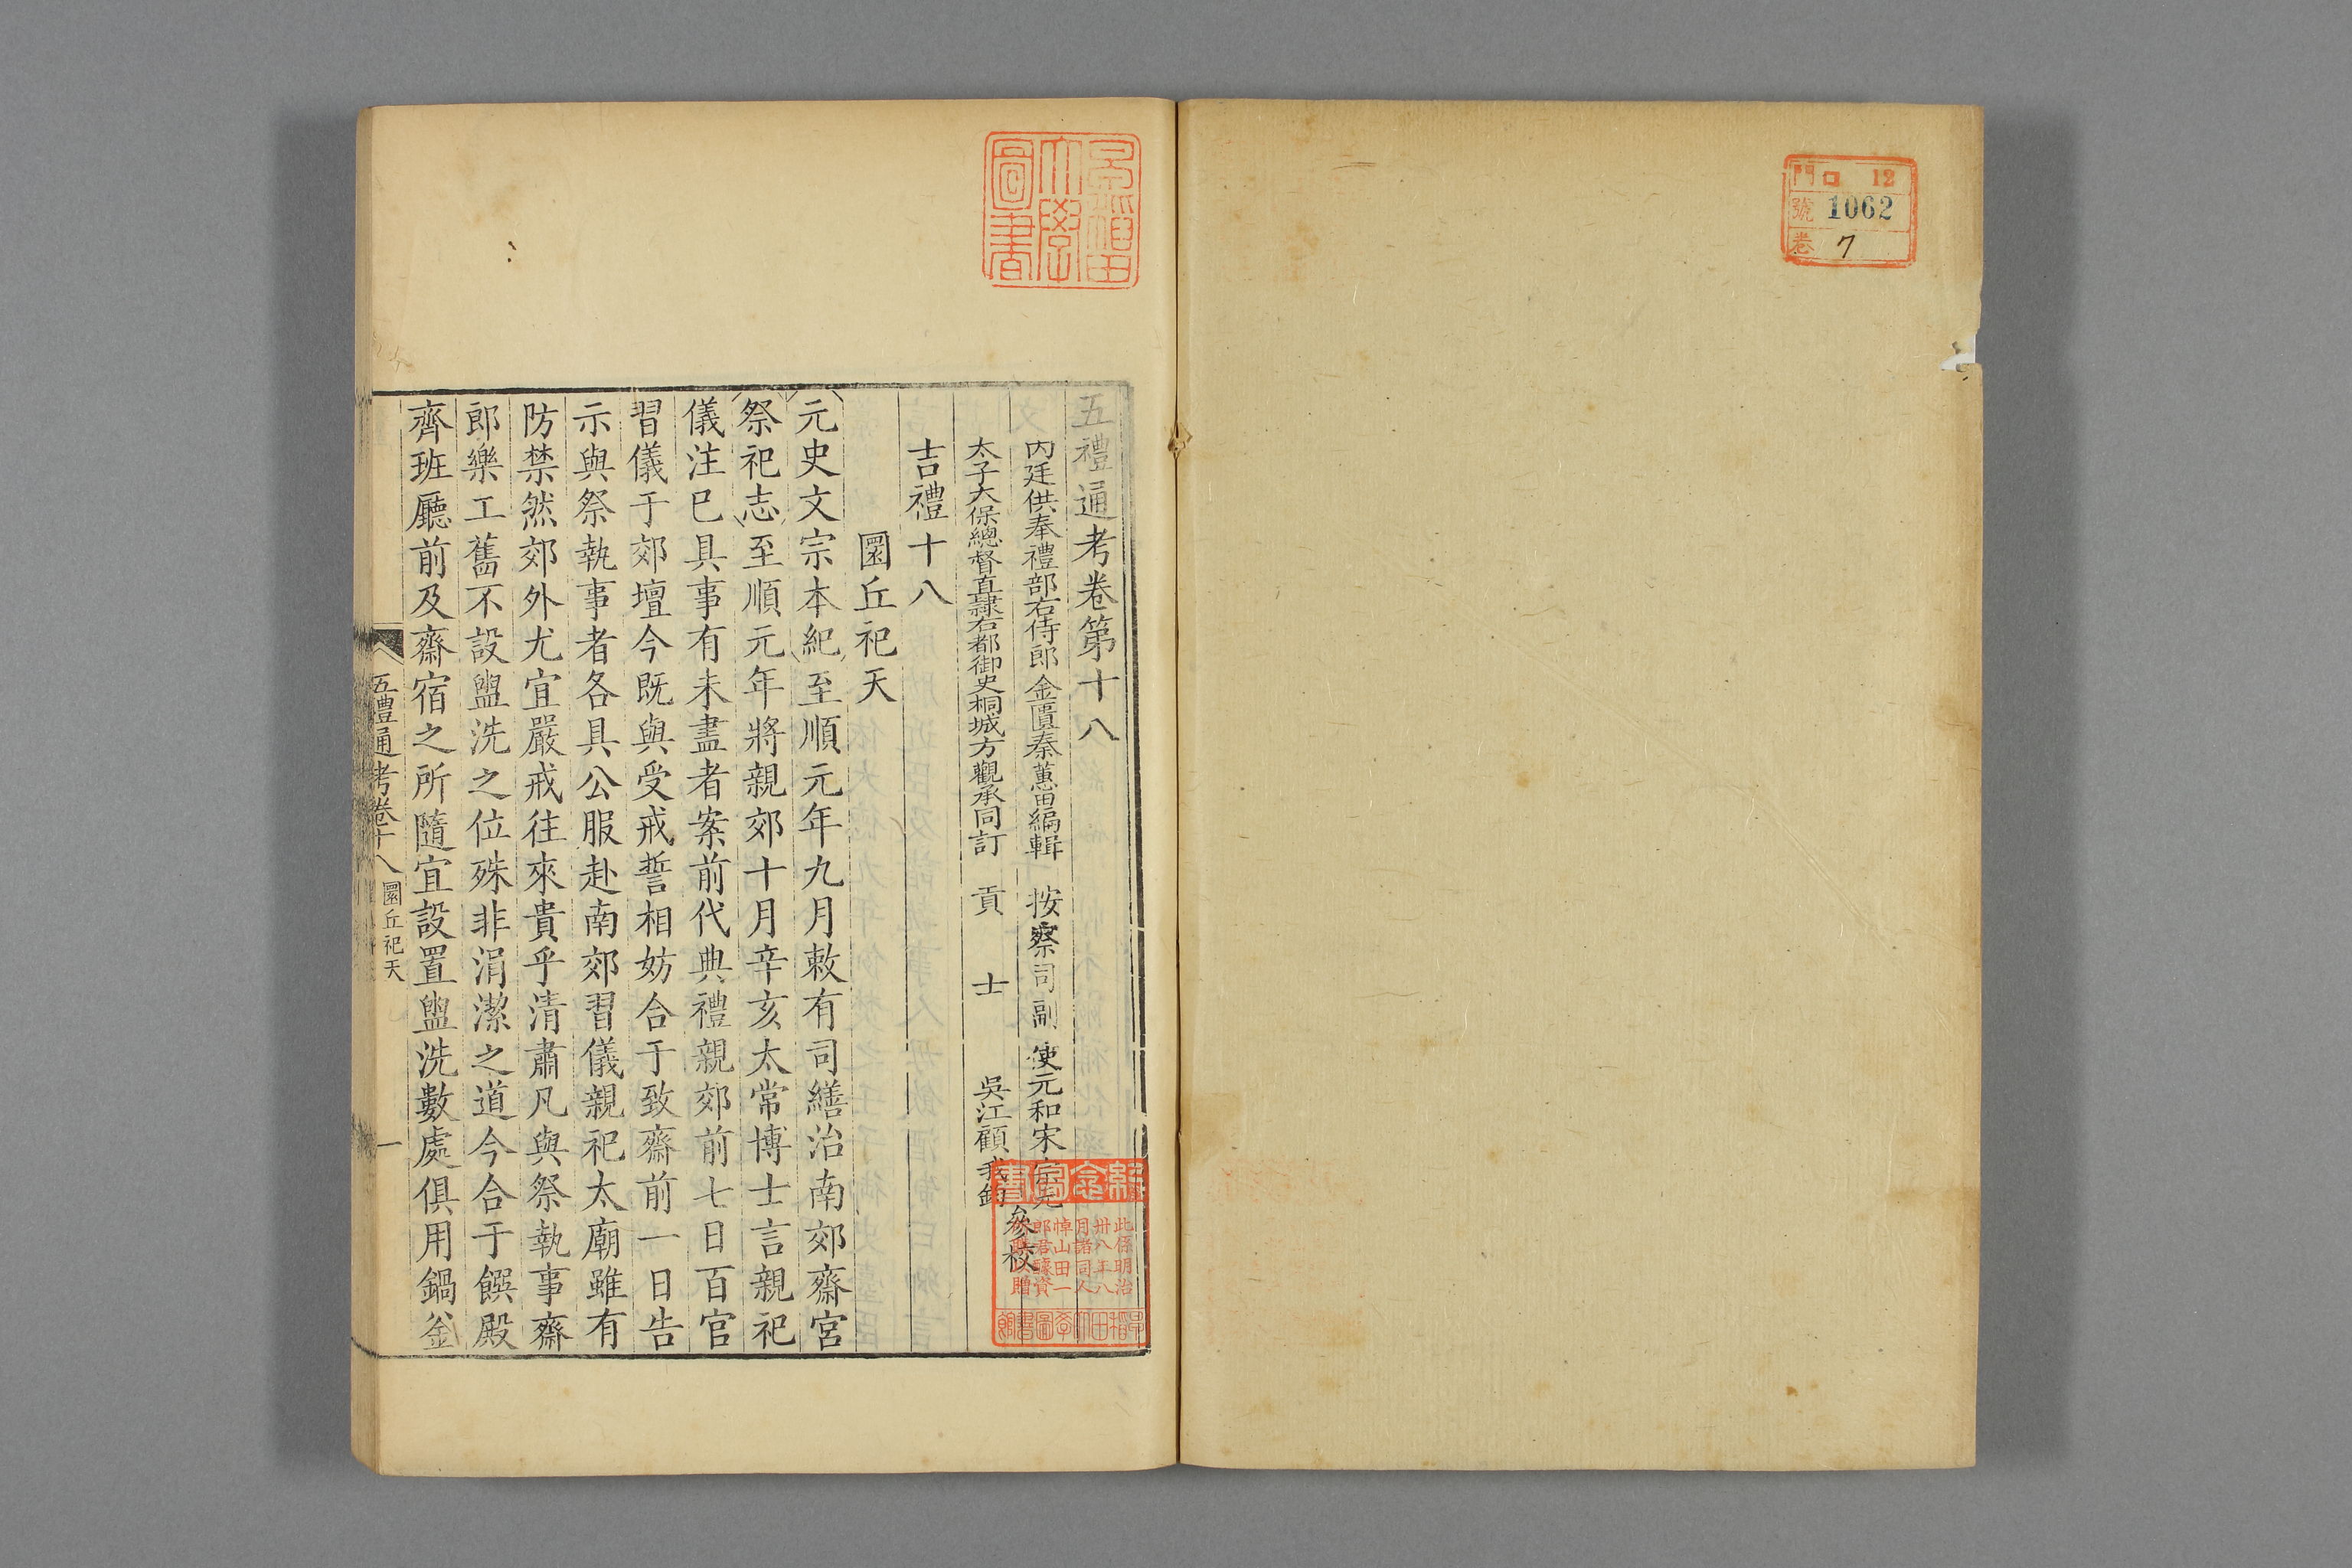 門 ロ 12
號 1062
卷 7
早稲田
大學
圖書
五禮通考卷第十八
內廷供奉禮部右侍郎金匱秦蕙田編輯 按察司副使元和宋宗元
太子太保總督直隸右都御史桐城方觀承同訂 貢士 吳江顧我錡
參校
吉禮十八
圜丘祀天
元史文宗本紀至順元年九月敕有司繕治南郊齋宮
祭祀志至順元年將親郊十月辛亥太常博士言親祀
儀注已具事有未盡者案前代典禮親郊前七日百官
習儀于郊壇今既與受戒誓相妨合于致齋前一日告
示與祭執事者各具公服赴南郊習儀親祀太廟雖有
防禁然郊外尤宜嚴戒往來貴乎清肅凡與祭執事齋
郎樂工舊不設盥洗之位殊非涓潔之道今合于饌殿
齊班廳前及齋宿之所隨宜設置盥洗數處俱用鍋釜
五禮通考卷十八 圜丘祀天 一
紀念圖書
此係明治
卅八年八
月諸同人
悼山田一
郎君醵資
贈
早稲田大學圖書館